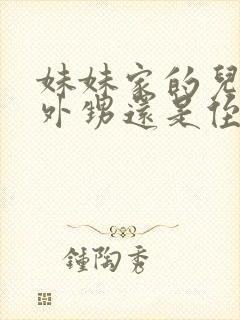 妹妹家的兒
外甥還是侄
鍾陶秀